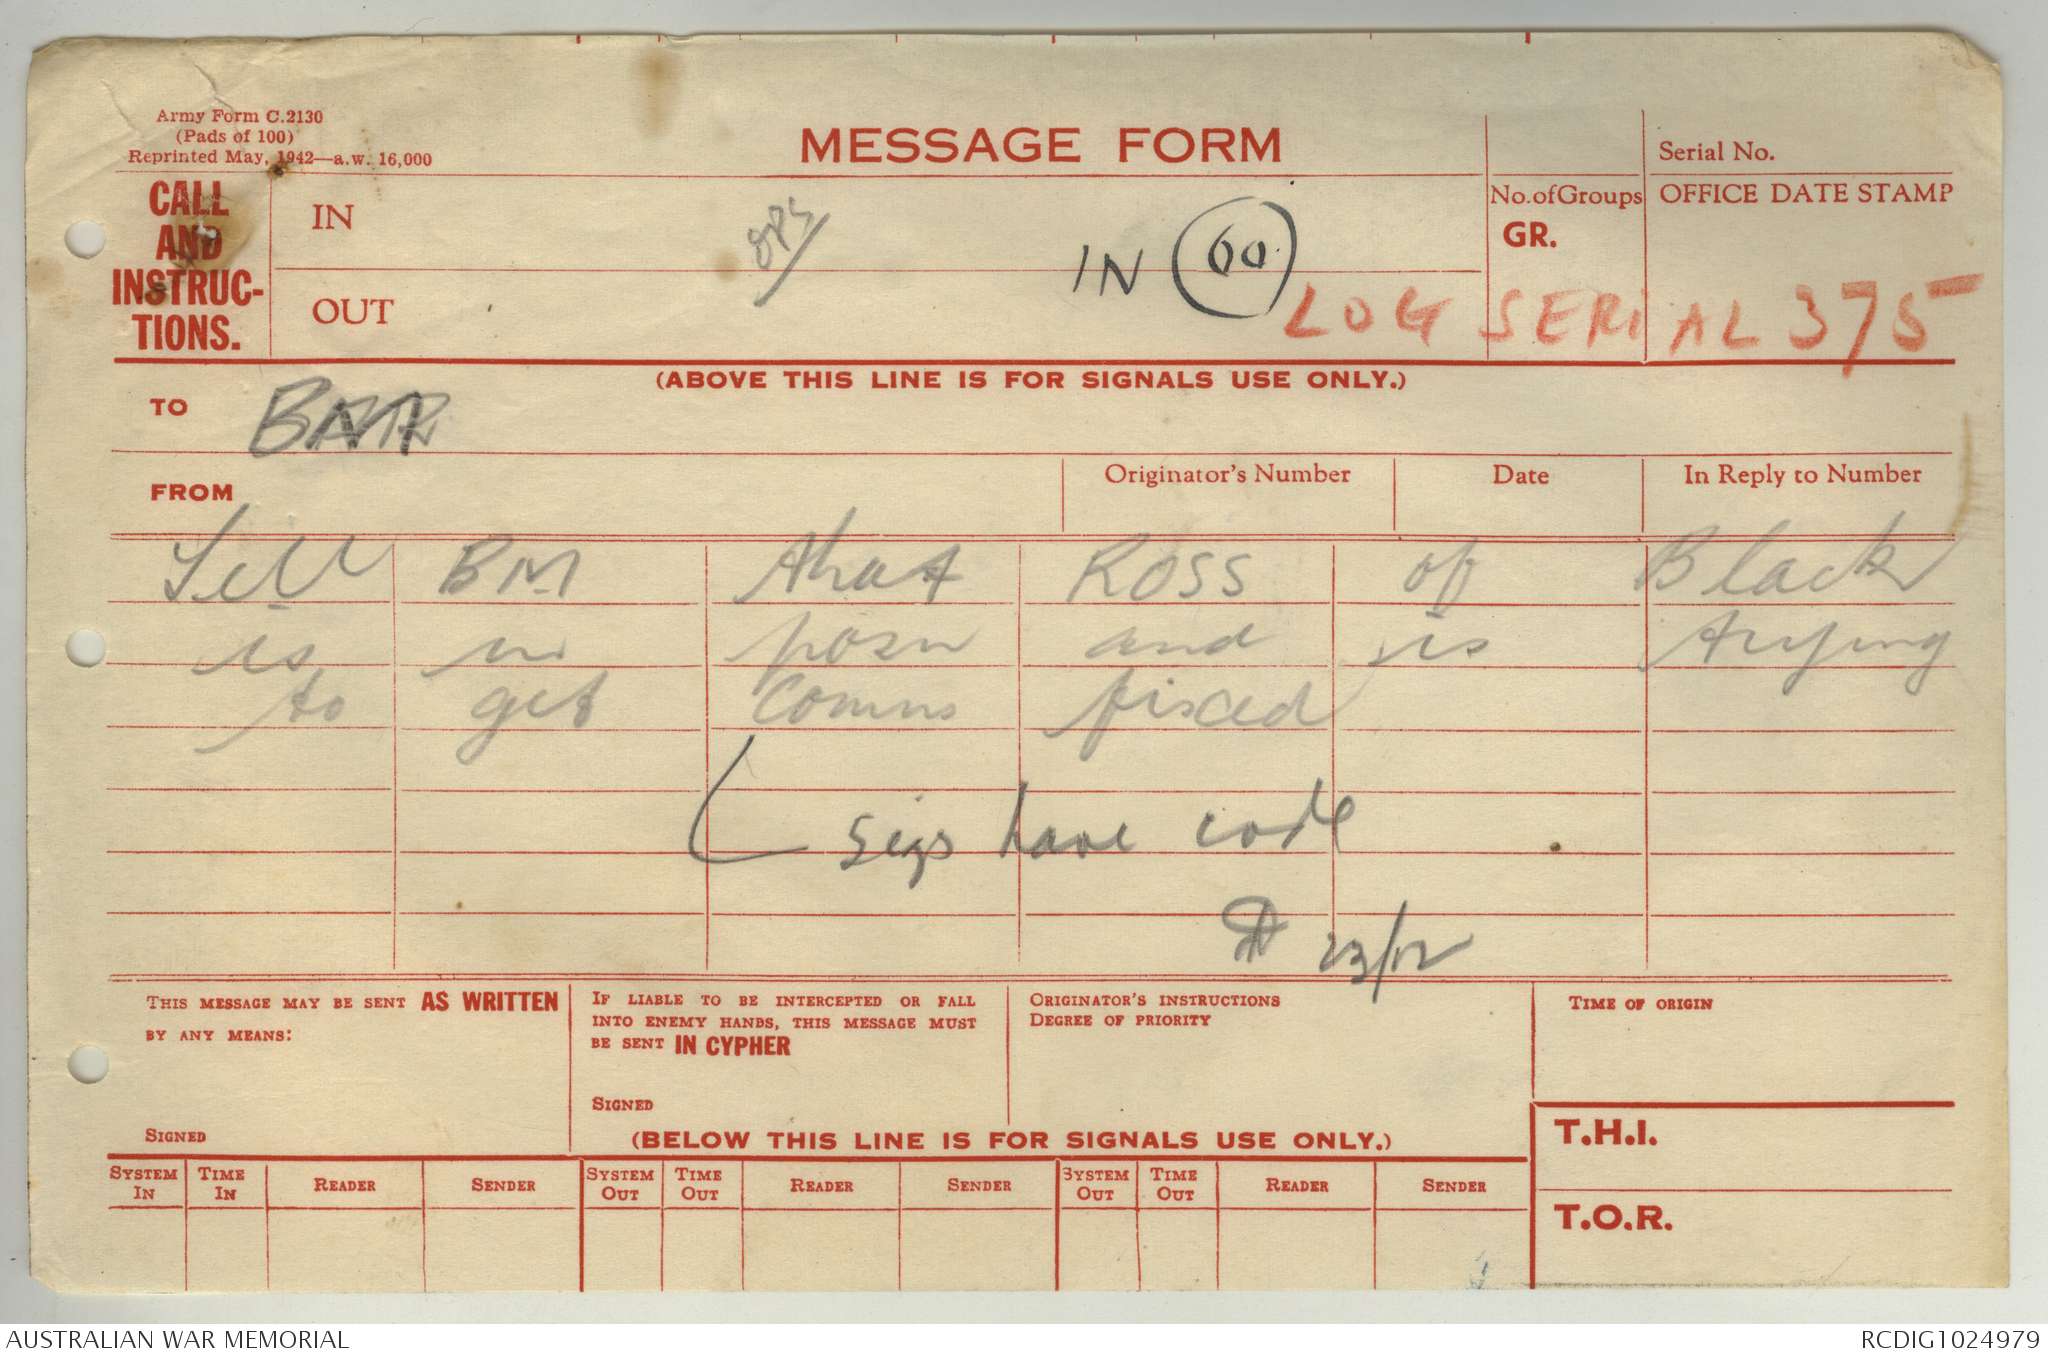 Army Form C.2130
(Pads of 100)
Reprinted May, 1942—a.w. 16,000
MESSAGE FORM
Serial No.
CALL AND INSTRUC-TIONS.
IN
OPS
IN 60
No. of Groups
GR.
OFFICE DATE STAMP
OUT
LOG SERIAL 375
(ABOVE THIS LINE IS FOR SIGNALS USE ONLY.)
TO
FROM
Originator's Number
Date
In Reply to Number
Tell BM that ROSS of Black
is in posn and is trying
to get Comms fixed
Sigs have code
23/12
THIS MESSAGE MAY BE SENT AS WRITTEN
BY ANY MEANS:
SIGNED
IF LIABLE TO BE INTERCEPTED OR FALL
INTO ENEMY HANDS, THIS MESSAGE MUST
BE SENT IN CYPHER
SIGNED
ORIGINATOR'S INSTRUCTIONS
DEGREE OF PRIORITY
TIME OF ORIGIN
(BELOW THIS LINE IS FOR SIGNALS USE ONLY.)
T.H.I.
SYSTEM IN TIME IN READER SENDER SYSTEM OUT TIME OUT READER SENDER SYSTEM OUT TIME OUT READER SENDER
T.O.R.
AUSTRALIAN WAR MEMORIAL
RCDIG1024979